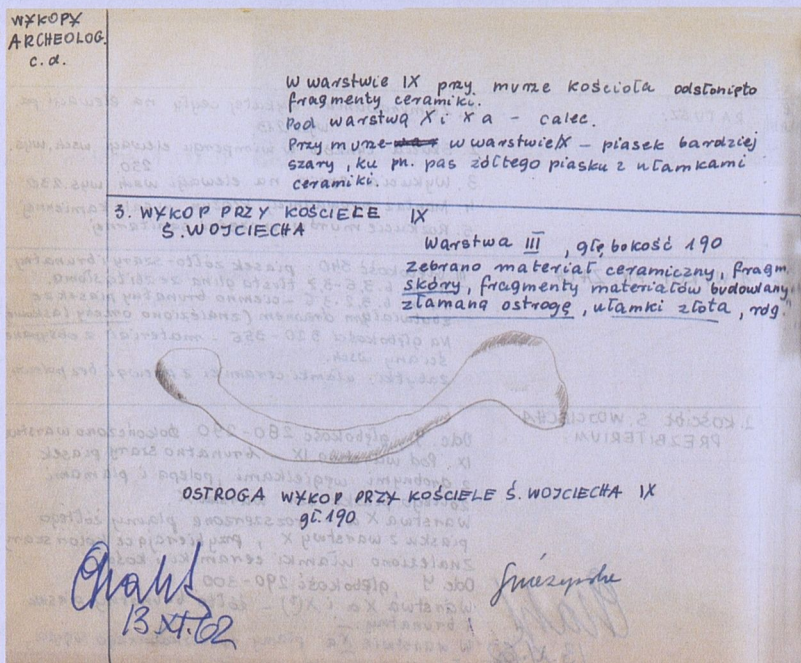 WYKOPY
ARCHEOLOG.
c.d.
W warstwie IX przy murze kościoła odsłonięto
fragmenty ceramiki.
Pod warstwą X i X a - calec.
Przy murze w warstwie IX - piasek bardziej
szary, ku pn. pas żółtego piasku z ułamkami
ceramiki.
3. WYKOP PRZY KOŚCIELE IX
Ś. WOJCIECHA
Warstwa III, głębokość 190
zebrano materiał ceramiczny, fragm.
skóry, fragmenty materiałów budowlany
złamaną ostrogę, ułamki złota, róg.
OSTROGA WYKOP PRZY KOŚCIELE Ś. WOJCIECHA IX
gł. 190
13 XI.62